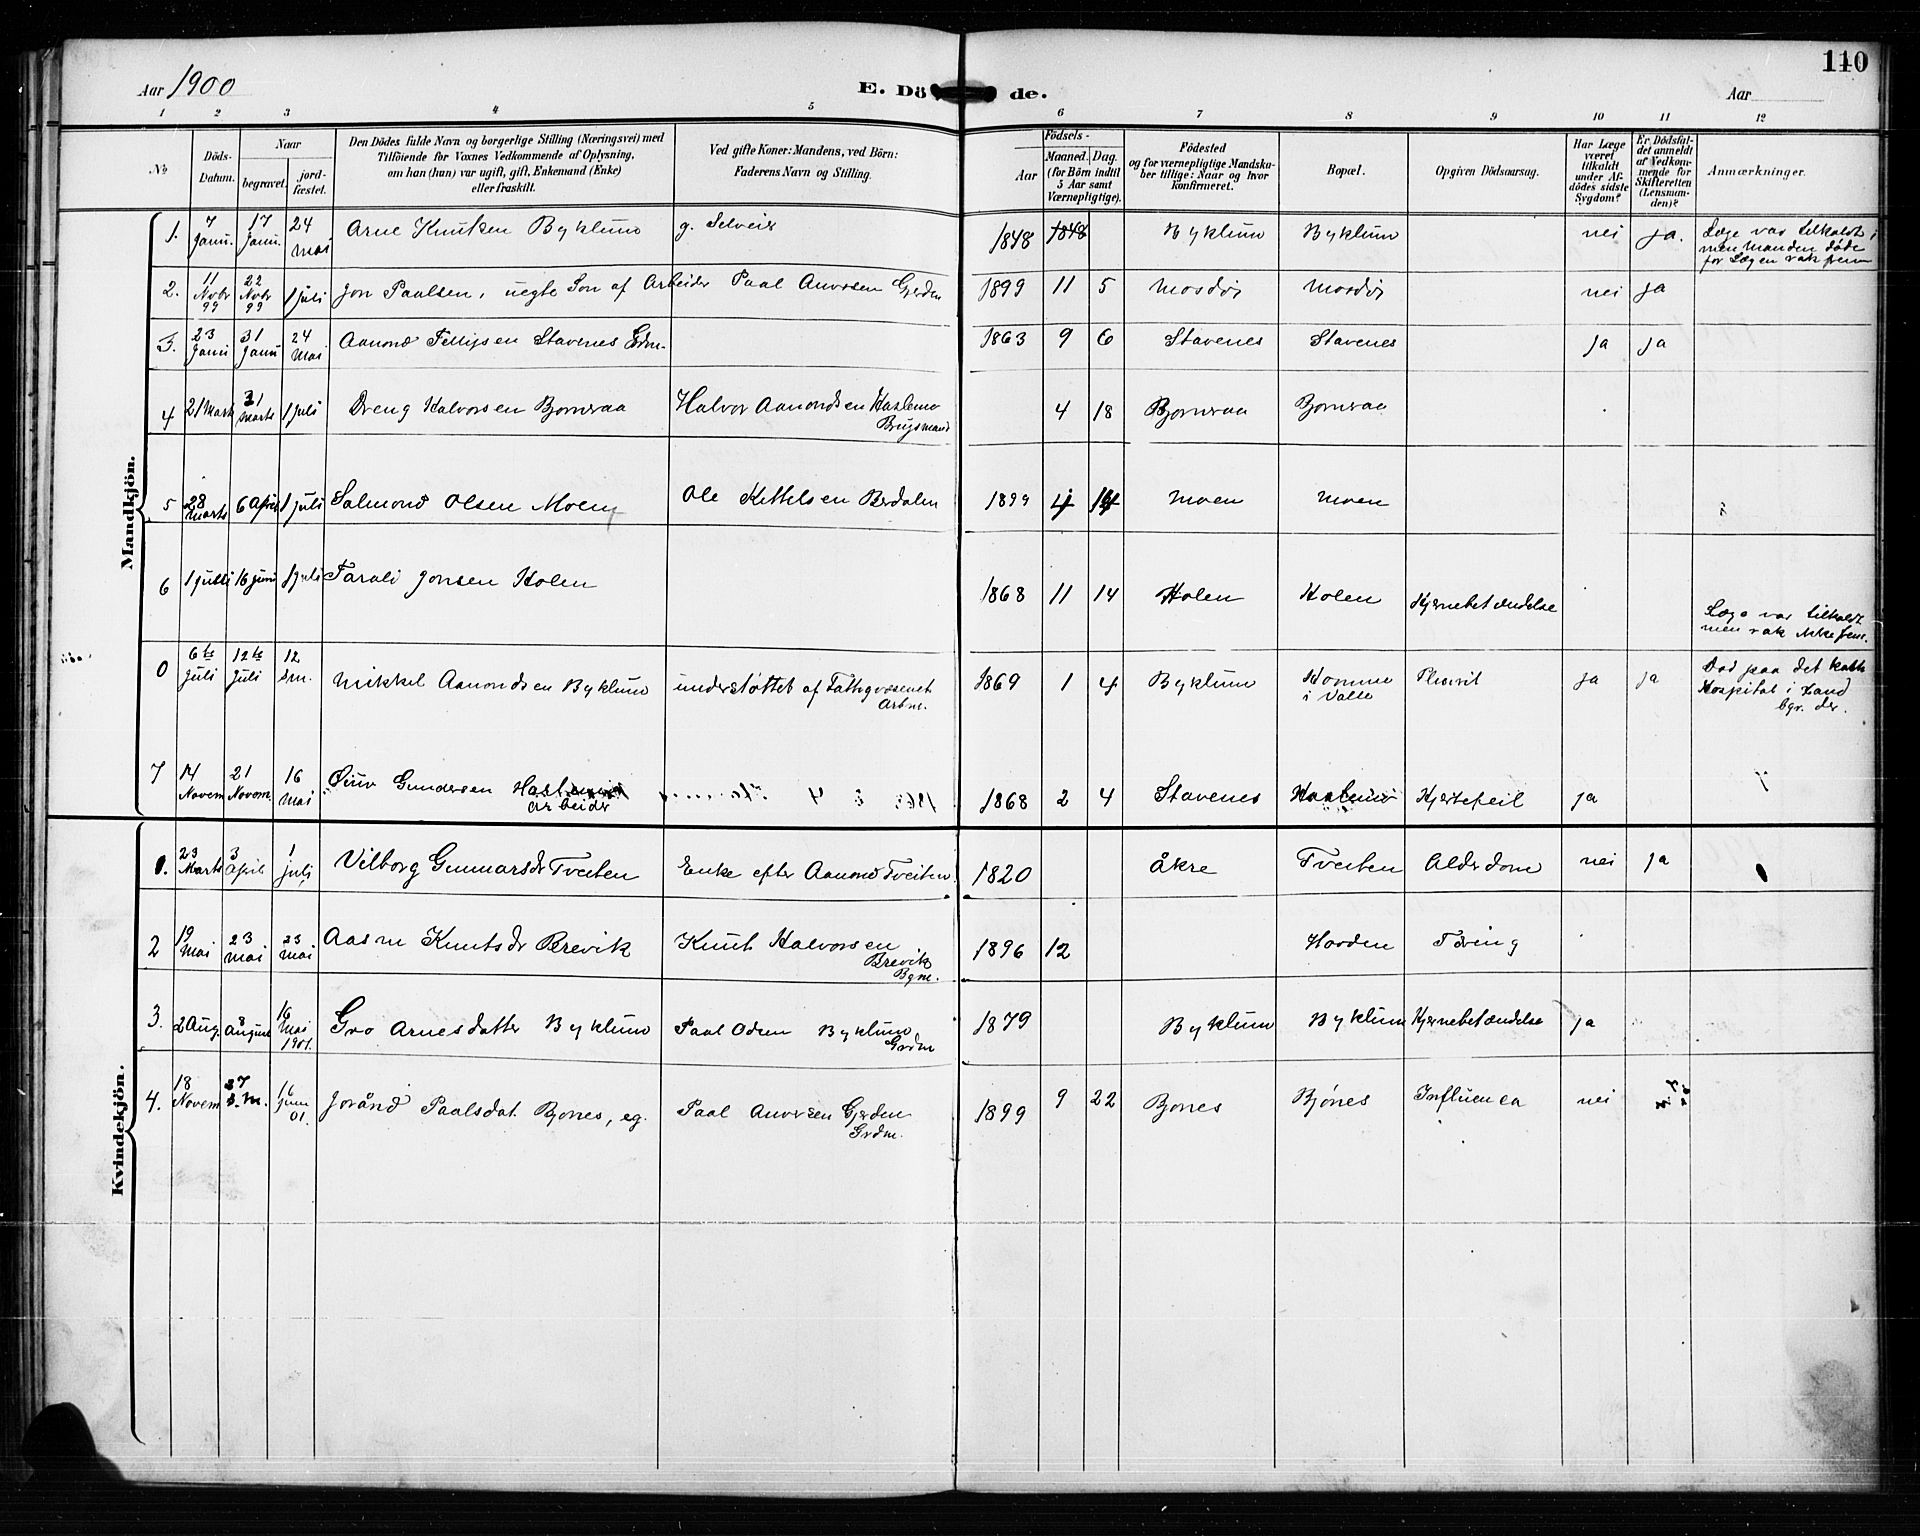 110
Aar 1900
E. Dö de.
Aar
1 2 3 4 5 6 7 8 9 10 11 12
No
Döds-Datum.
Naar
begravet.
jordfæstet.
Den Dödes fulde Navn og borgerlige Stilling (Næringsvei) med
Tilföiende for Voxnes Vedkommende af Oplysning,
om han (hun) var ugift, gift, Enkemand (Enke)
eller fraskilt.
Ved gifte Koner: Mandens, ved Börn:
Faderens Navn og Stilling.
Födsels-
Aar
Maaned. Dag.
(for Börn indtil
5 Aar samt
Værnepligtige).
Födested
og for værnepligtige Mandskaber tillige: Naar og hvor
Konfirmeret.
Bopæl.
Opgiven Dödsaarsag.
Har Læge
været
tilkaldt
under Afdödes sidste
Sygdom?
Er Dödsfaldet anmeldt
af Vedkommende for
Skifteretten
(Lensmanden)?
Anmærkninger.
Mandkjön.
1. 7 Janu. 17 Janu. 24 Mai Arne Knutsen Byklum g. Selveier 1848 1848 Byklum Byklum nei ja. Læge var tilkaldt
men Manden døde
før Lægen rak frem
2. 11 Novbr 99 22 Novbr 99 1 juli Jon Paalsen, uegte Søn af Arbeider Paal Anversen Gjerden 1899 11 5 Mosdøi Mosdøi nei ja
3. 23 Janu 31 Janu 24 Mai Aanond Fellipsen Stavenes Grdm. 1863 9 6 Stavenes Stavenes ja ja
4 21 Marts 31 Marts 1 juli Dreng Halvorsen Bjornraa Halvor Aanondsen Haslemo
Brugsmand 4 18 Bjornraa Bjornraa
5 28 Marts 6 April 1 juli Salmond Olsen Moen Ole Kittelsen Berdalen 1899 4 14 Moen Moen
6 1 juli 16 juni 1 juli Taralf Jonsen Holen 1868 11 14 Holen Holen Hjernebetændelse Læge var tilkaldt
men rak ikke frem.
0 6te Juli 12te Juli 12 s.m. Mikkel Aanondsen Byklum understøttet af Fattigvæsenet
Arbm. 1869 1 4 Byklum Homme
i Valle Plevrit ja ja Død paa det kath.
Hospital i Xsand
bgr. der.
7 14 Novem 21 Novem. 16 Mai Øiuv Gundersen Haslemo
arbeider 1868 2 4 Stavenes Haslemo Hjertefeil ja
Kvindekjön.
1. 23 Marts 3 April 1 juli Vilborg Gunnarsdr Tveiten Enke efter Aanond Tveiten. 1820 Åkre Tveiten Alderdom nei ja
2 19 Mai 23 Mai 23 Mai Aasne Knutsdr Brevik Knut Halvorsen
Brevik
Bgm. 1896 12 Hovden Tæring
3. 2 Aug. 8 August 16 Mai 1901. Gro Arnesdatter Byklum Paal Odsen Byklum
Grdm 1879 Byklum Byklum Hjernebetændelse ja
4. 18 Novem 27 s.m. 16 juni 01. Jorånd Paalsdat. Bjones, eg. Paal Anversen Gjerden
Grdm. 1899 9 22 Bjones Bjønes Influenca nei